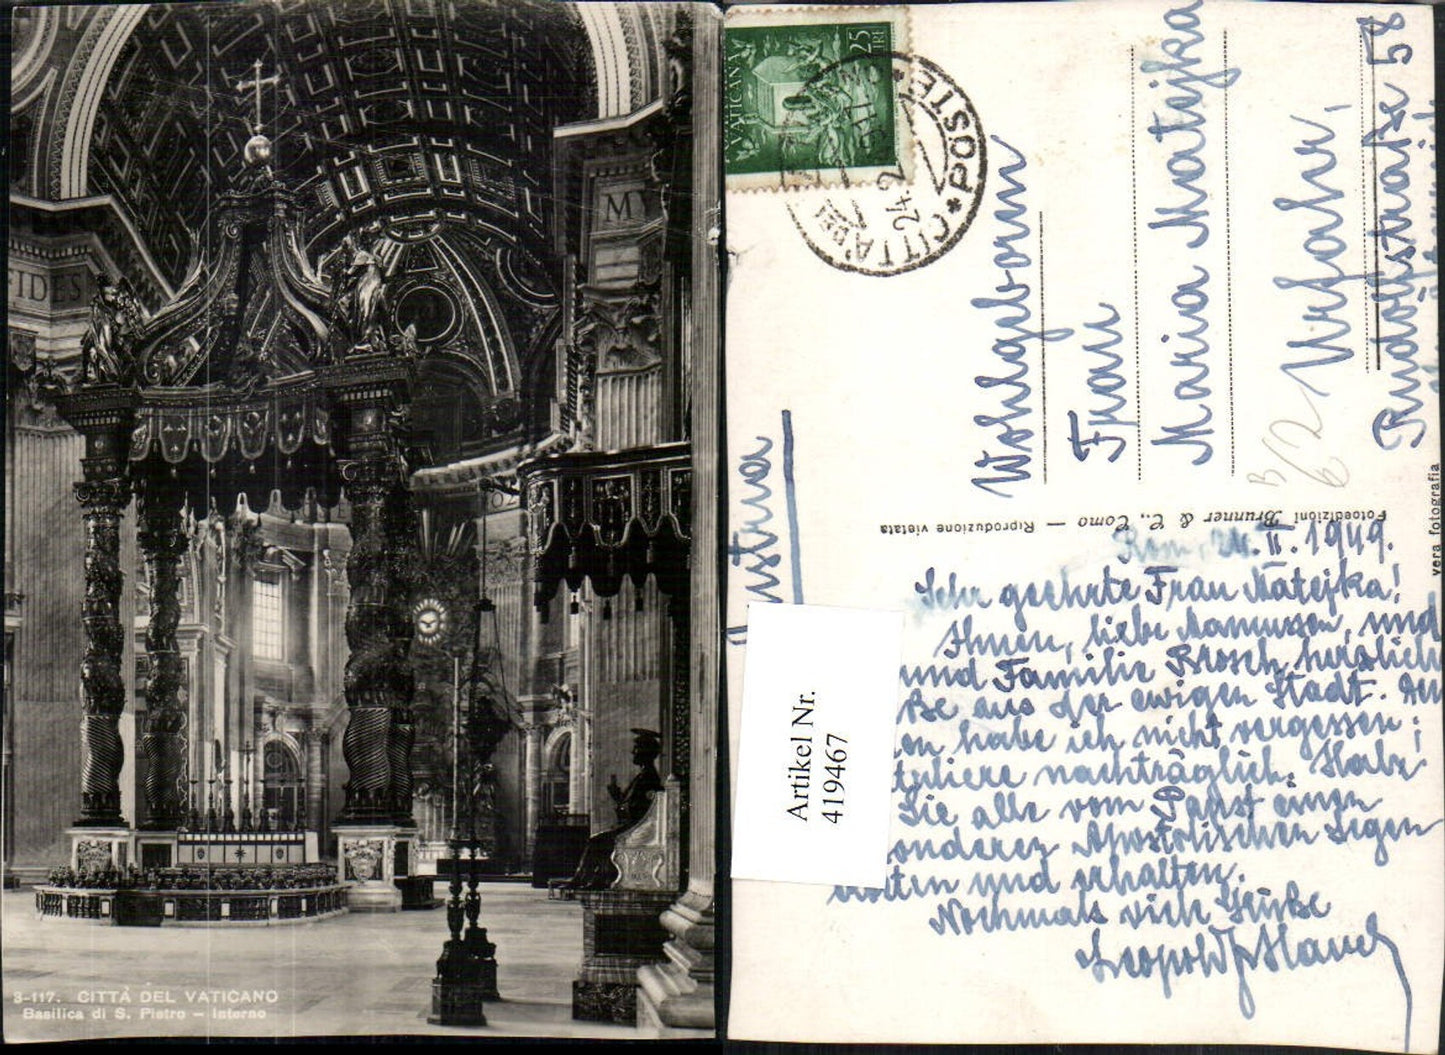 MY
IDES
3-117. CITTÀ DEL VATICANO
Basilica di S. Pietro – Interno
25
LIRE
VATICANA
CITTA' DEL
POSTE
24.2
Wohlgeboren
Frau
Maria Matejka
Urfahr,
Rudolfstraße 58
B/62
Austria
Fotoedizioni Brunner & C., Como — Riproduzione vietata
vera fotografia
Artikel Nr.
419467
Rom, 24. II. 1949.
Sehr geehrte Frau Matejka!
Ihnen, liebe und
und Familie Brosch herzlich
ße aus der ewigen Stadt.
en habe ich nicht vergessen;
tuliere nachträglich. Habe
Sie alle vom Papst einen
onderen Apostolischen Segen
beten und erhalten.
Nochmals viele Grüße
Leopold